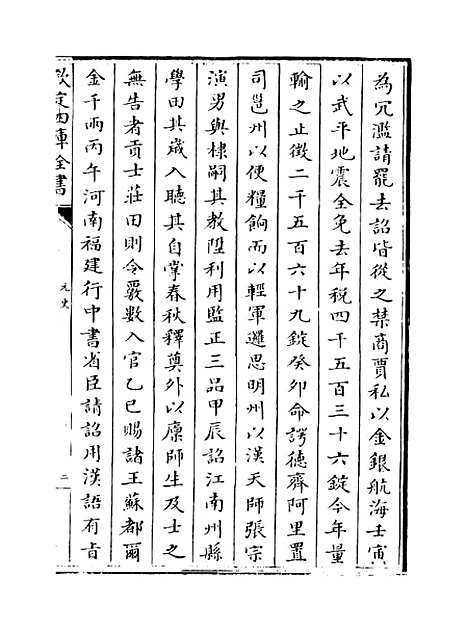 為冗濫請罷去詔皆從之禁商賈私以金銀航海壬寅
以武平地震全免去年税四千五百三十六錠今年量
輸之止徵二千五百六十九錠癸夘命諤徳齊阿里置
司邕州以便糧餉而以輕軍邏思明州以漢天師張宗
演男與棣嗣其教陞利用監正三品甲辰詔江南州縣
學田其歳入聽其自掌春秋釋奠外以廩師生及士之
無告者貢士莊田則令覈數入官乙巳賜諸王蘇都爾
金千兩丙午河南福建行中書省臣請詔用漢語有㫖
欽定四庫全書
元史
二